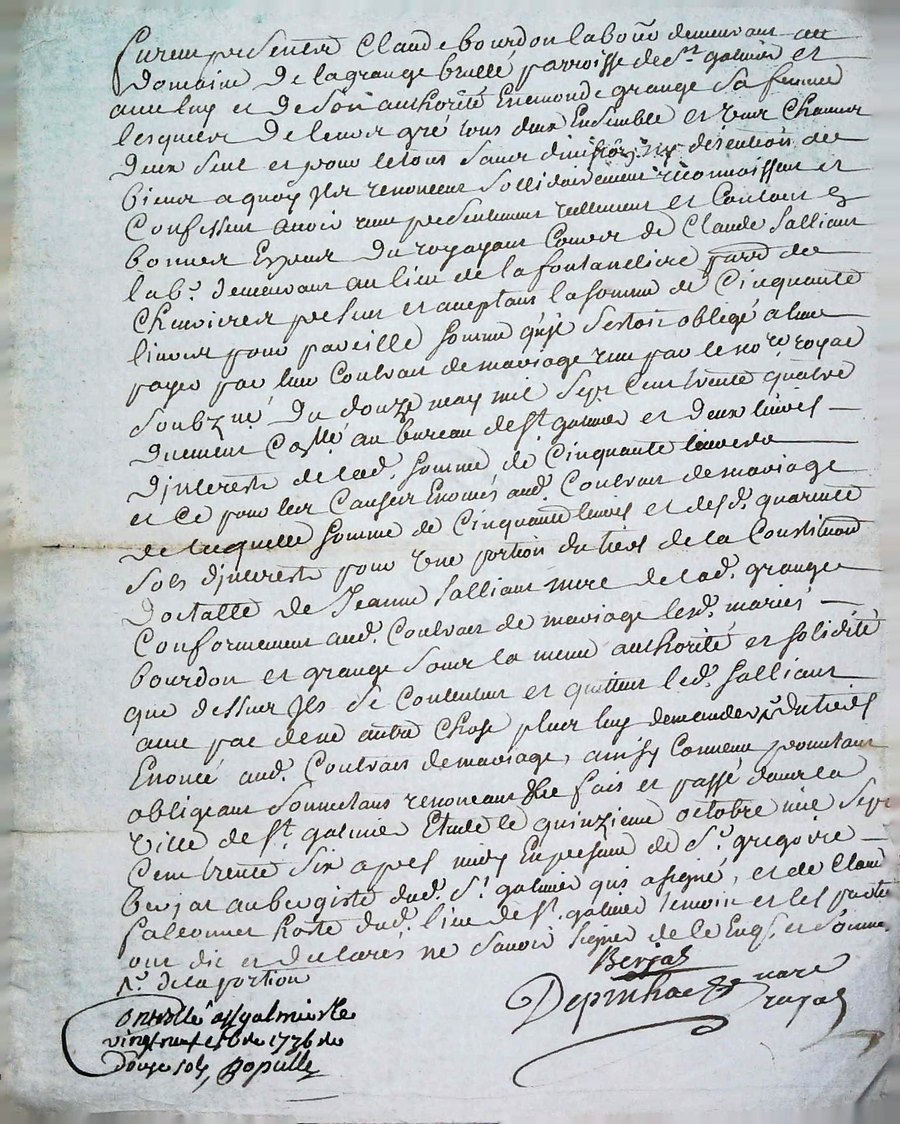 furent presents Claude bourdon labour demeurant au
Domaine De lagrange brullé parroisse de St. galmier et
avec luy et De son authorité Enemonde grange Sa femme
lesquels De leur gré tous deux Ensemble et l'un Chacun
Deux seul et pour le tous sans division ny dicention de
biens a quoy Ils renoncent sollidairement reconnoissent et
Confessent avoir reçu presentement reellement et Contant
bonnes Espèces Du royaume Cours de Claude Salliant
lab.r Demeurant au lieu de la fontandiere parr.se de
Chevrieres present et aceptant la somme de Cinquante
livres pour pareille somme qu'il s'estoit obligé a leur
payer par leur Contrat de mariage reçu par le no.re royal
Soubzné Du douze may mil Sept Cent trente quatre
Duement Collé au bureau de St. galmier et Deux livres
D'interests de lad. somme de Cinquante livres
et Ce pour les Causes Enoncés aud. Contrat de mariage
de laquelle somme de Cinquante livres et desd. quarante
Sols d'interests pour Une portion du tiers de la Constitution
Dotalle De Jeanne Salliant mere de lad. grange
Conformement aud. Contrat de mariage lesd. mariés
bourdon et grange sous la meme authorité et solidité
que dessus Ils se Contentent et quittent led. Salliant
avec pac de ne autre Chose plus luy demander pr. Du tiers
Enoncé aud. Contrat de mariage, ainsy Convenu promettant
obligeant Soumettant renonceant fait et passé dans la
ville de St. galmier Etude le quinzieme octobre mil Sept
Cent trente Six apres midy En presence de Sr. gregoire
berjat aubergiste dud. St. galmier qui a signé, et de Claude
falconnet hoste dud. lieu de St. galmier temoins et les parties
ont dit et declaré ne Savoir Signer de ce Enqs. et Sommés
pr. de la portion
Berjat
Depinhac no.re royal
Controllé a St galmier le
vingt neuf 8bre 1736 reçu
Douze sols, Populle